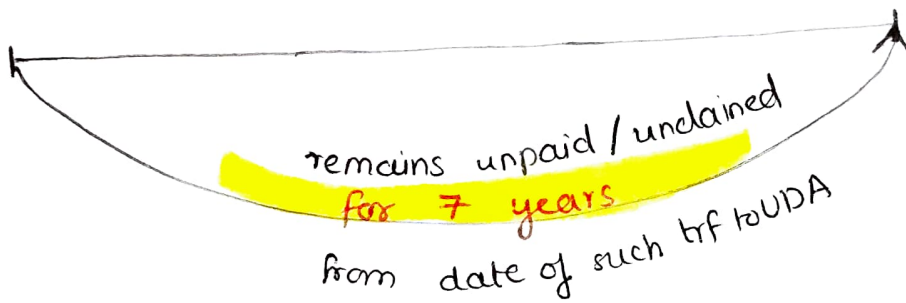 remains unpaid / unclained
for 7 years
from date of such trf to UDA